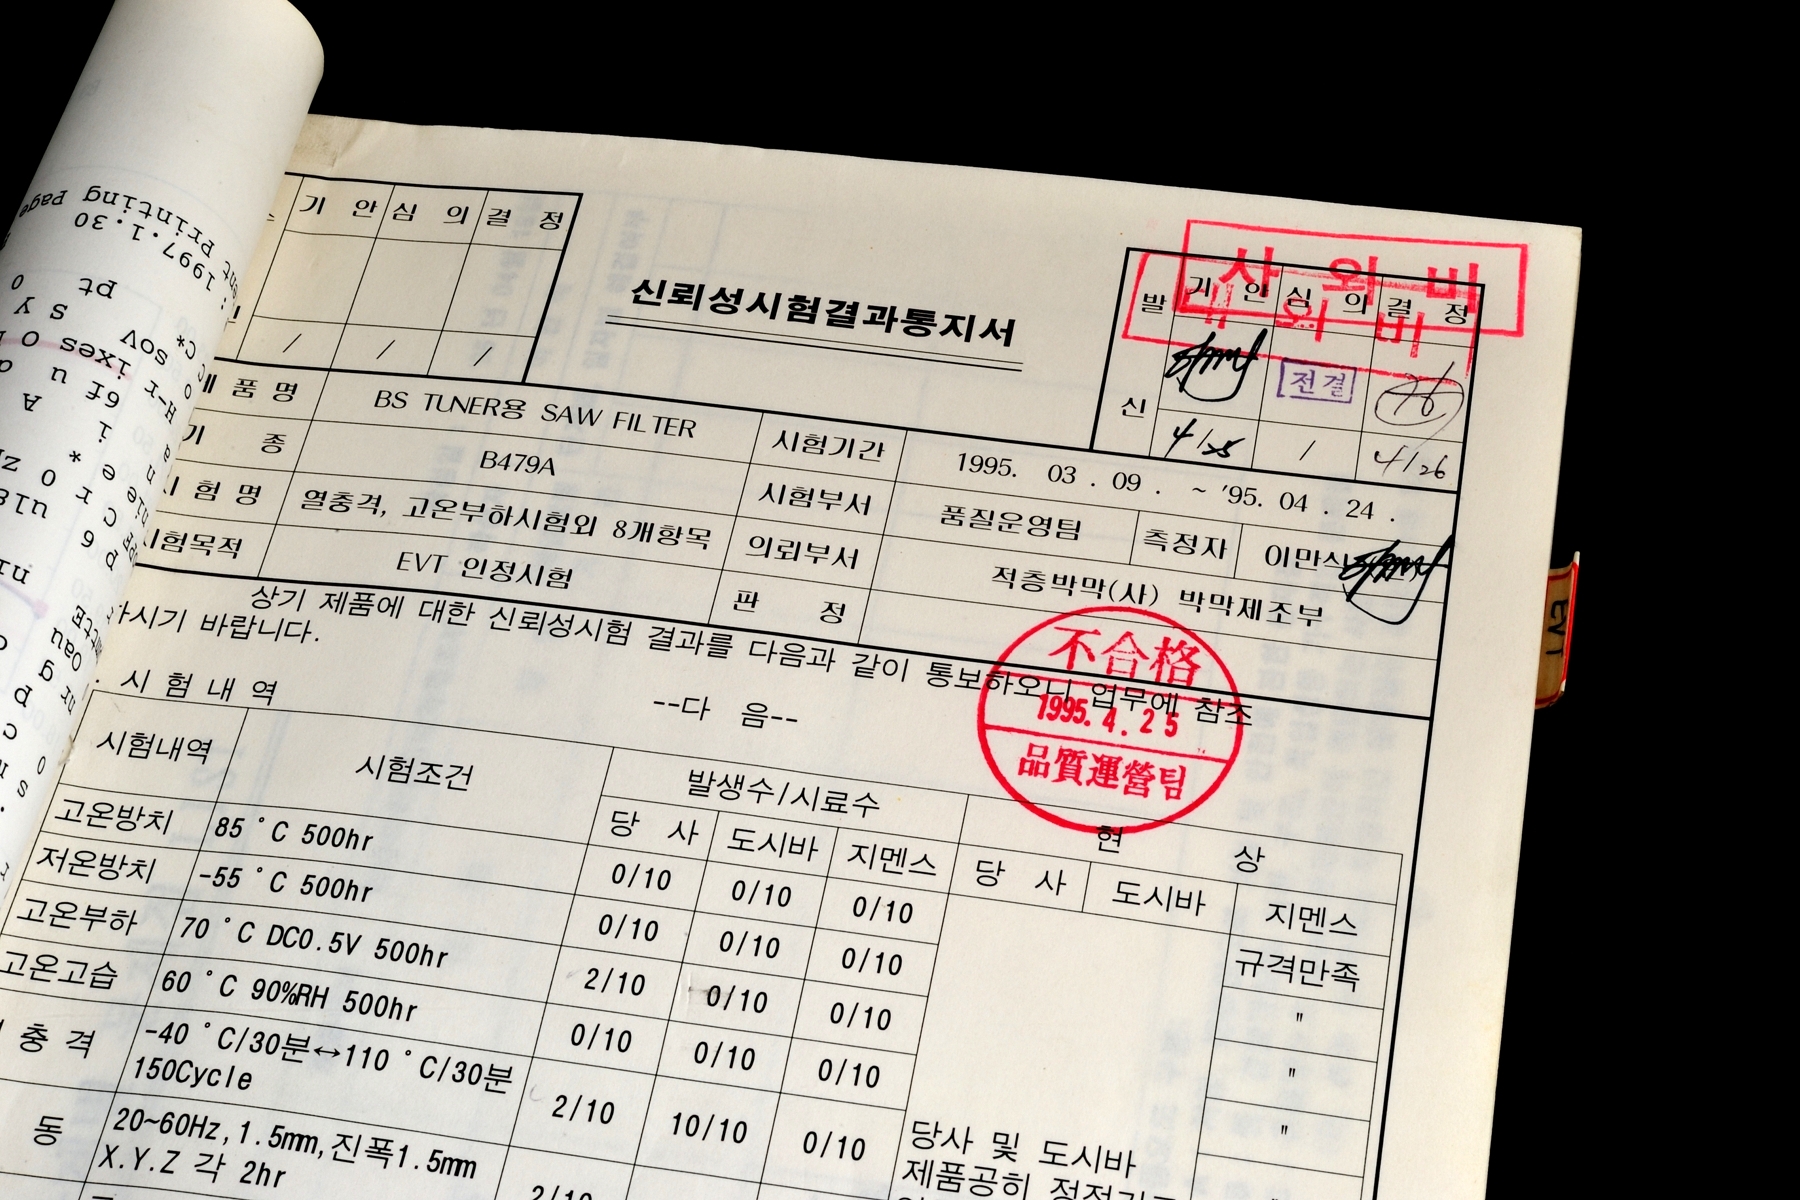 Printing Page
1997.1.30
기 안 심 의 결 정
/ / /
신뢰성시험결과통지서
사 외 비
대 외 비
발 신
기 안 심 의 결 정
전결
4/25 / 4/26
품 명 BS TUNER용 SAW FILTER 시험기간 1995. 03 . 09 . ~ '95. 04 . 24 .
기 종 B479A 시험부서 품질운영팀 측정자 이만식
시 험 명 열충격, 고온부하시험외 8개항목 의뢰부서 적층박막(사) 박막제조부
시험목적 EVT 인정시험 판 정
不合格
1995. 4. 25
品質運營팀
상기 제품에 대한 신뢰성시험 결과를 다음과 같이 통보하오니 업무에 참조
하시기 바랍니다.
--다 음--
. 시 험 내 역
시험내역 시험조건 발생수/시료수 현 상
당 사 도시바 지멘스 당 사 도시바 지멘스
고온방치 85 ˚C 500hr 0/10 0/10 0/10 규격만족
저온방치 -55 ˚C 500hr 0/10 0/10 0/10 "
고온부하 70 ˚C DC0.5V 500hr 2/10 0/10 0/10 "
고온고습 60 ˚C 90%RH 500hr 0/10 0/10 0/10 "
충 격 -40 ˚C/30분↔110 ˚C/30분
150Cycle 2/10 10/10 0/10 "
동 20~60Hz,1.5mm,진폭1.5mm
X.Y.Z 각 2hr 2/10
당사 및 도시바
제품공히
EVT